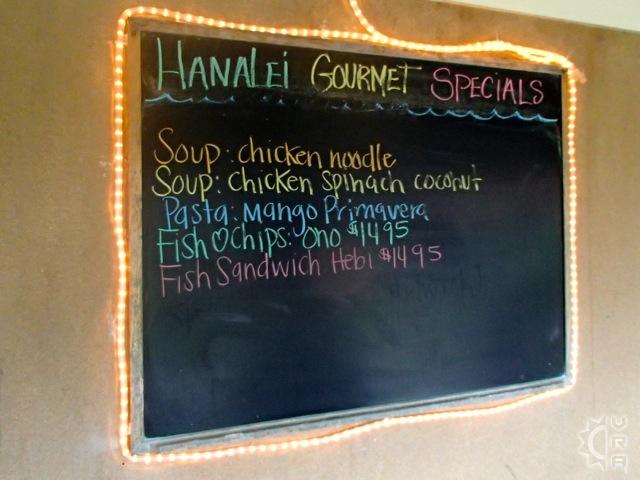 HANALEi GOURMET SPECIALS
Soup: chicken noodle
Soup: chicken spinach coconut
Pasta: Mango Primavera
Fish ♡ chips: Ono $1495
Fish Sandwich Hebi $1495
VRA